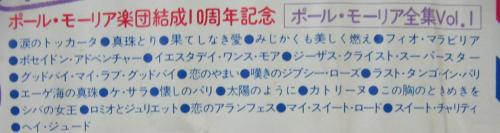 ポール・モーリア楽団結成10周年記念 ポール・モーリア全集Vol.1
●涙のトッカータ●真珠とり●果てしなき愛●みじかくも美しく燃え●フィオ・マラビリア
●ポセイドン・アドベンチャー●イエスタデイ・ワンス・モア●ジーザス・クライスト・スーパースター
●グッドバイ・マイ・ラブ・グッドバイ●恋のやまい●嘆きのジプシー・ローズ●ラスト・タンゴ・イン・パリ
●エーゲ海の真珠●ケ・サラ●懐しのパリ●太陽のように●カトリーヌ●この胸のときめきを
●シバの女王●ロミオとジュリエット●恋のアランフェス●マイ・スイート・ロード●スイート・チャリティ
●ヘイ・ジュード